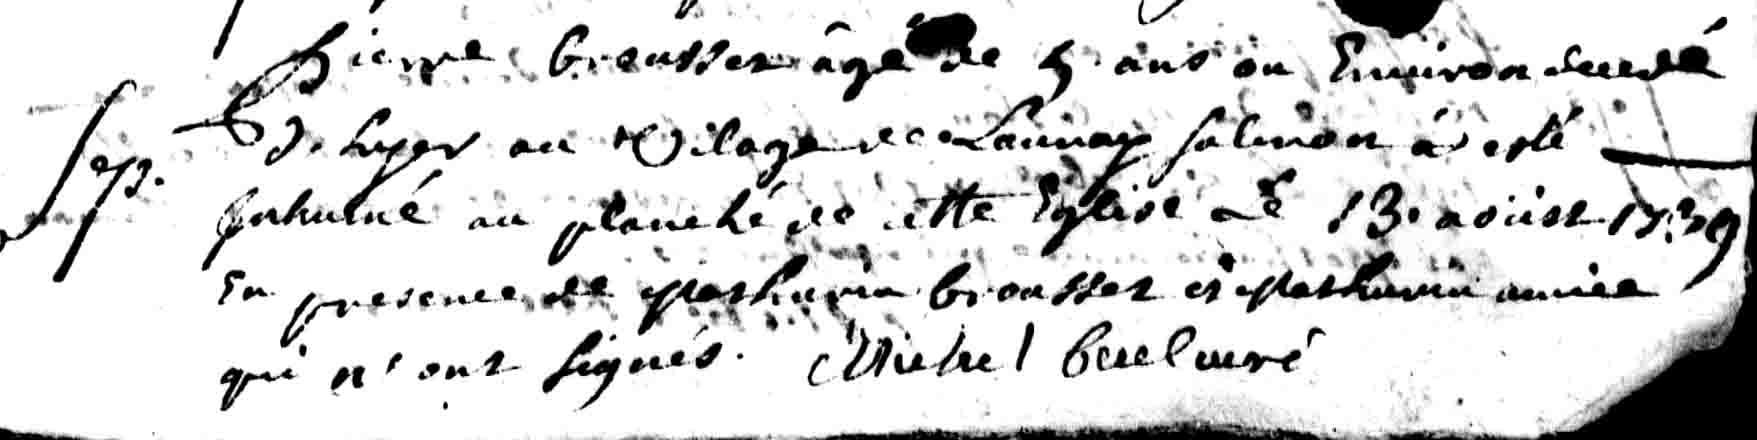 Pierre brousset âgé de 5 ans ou Environ decedé
Sep. d'hyer au Vilage de Launay salmon à esté
Inhumé au planché de cette Eglise Le 13. aoust 1739
En presence de Mathurin brousset et Mathurin
qui n'ont signés. Michel curé